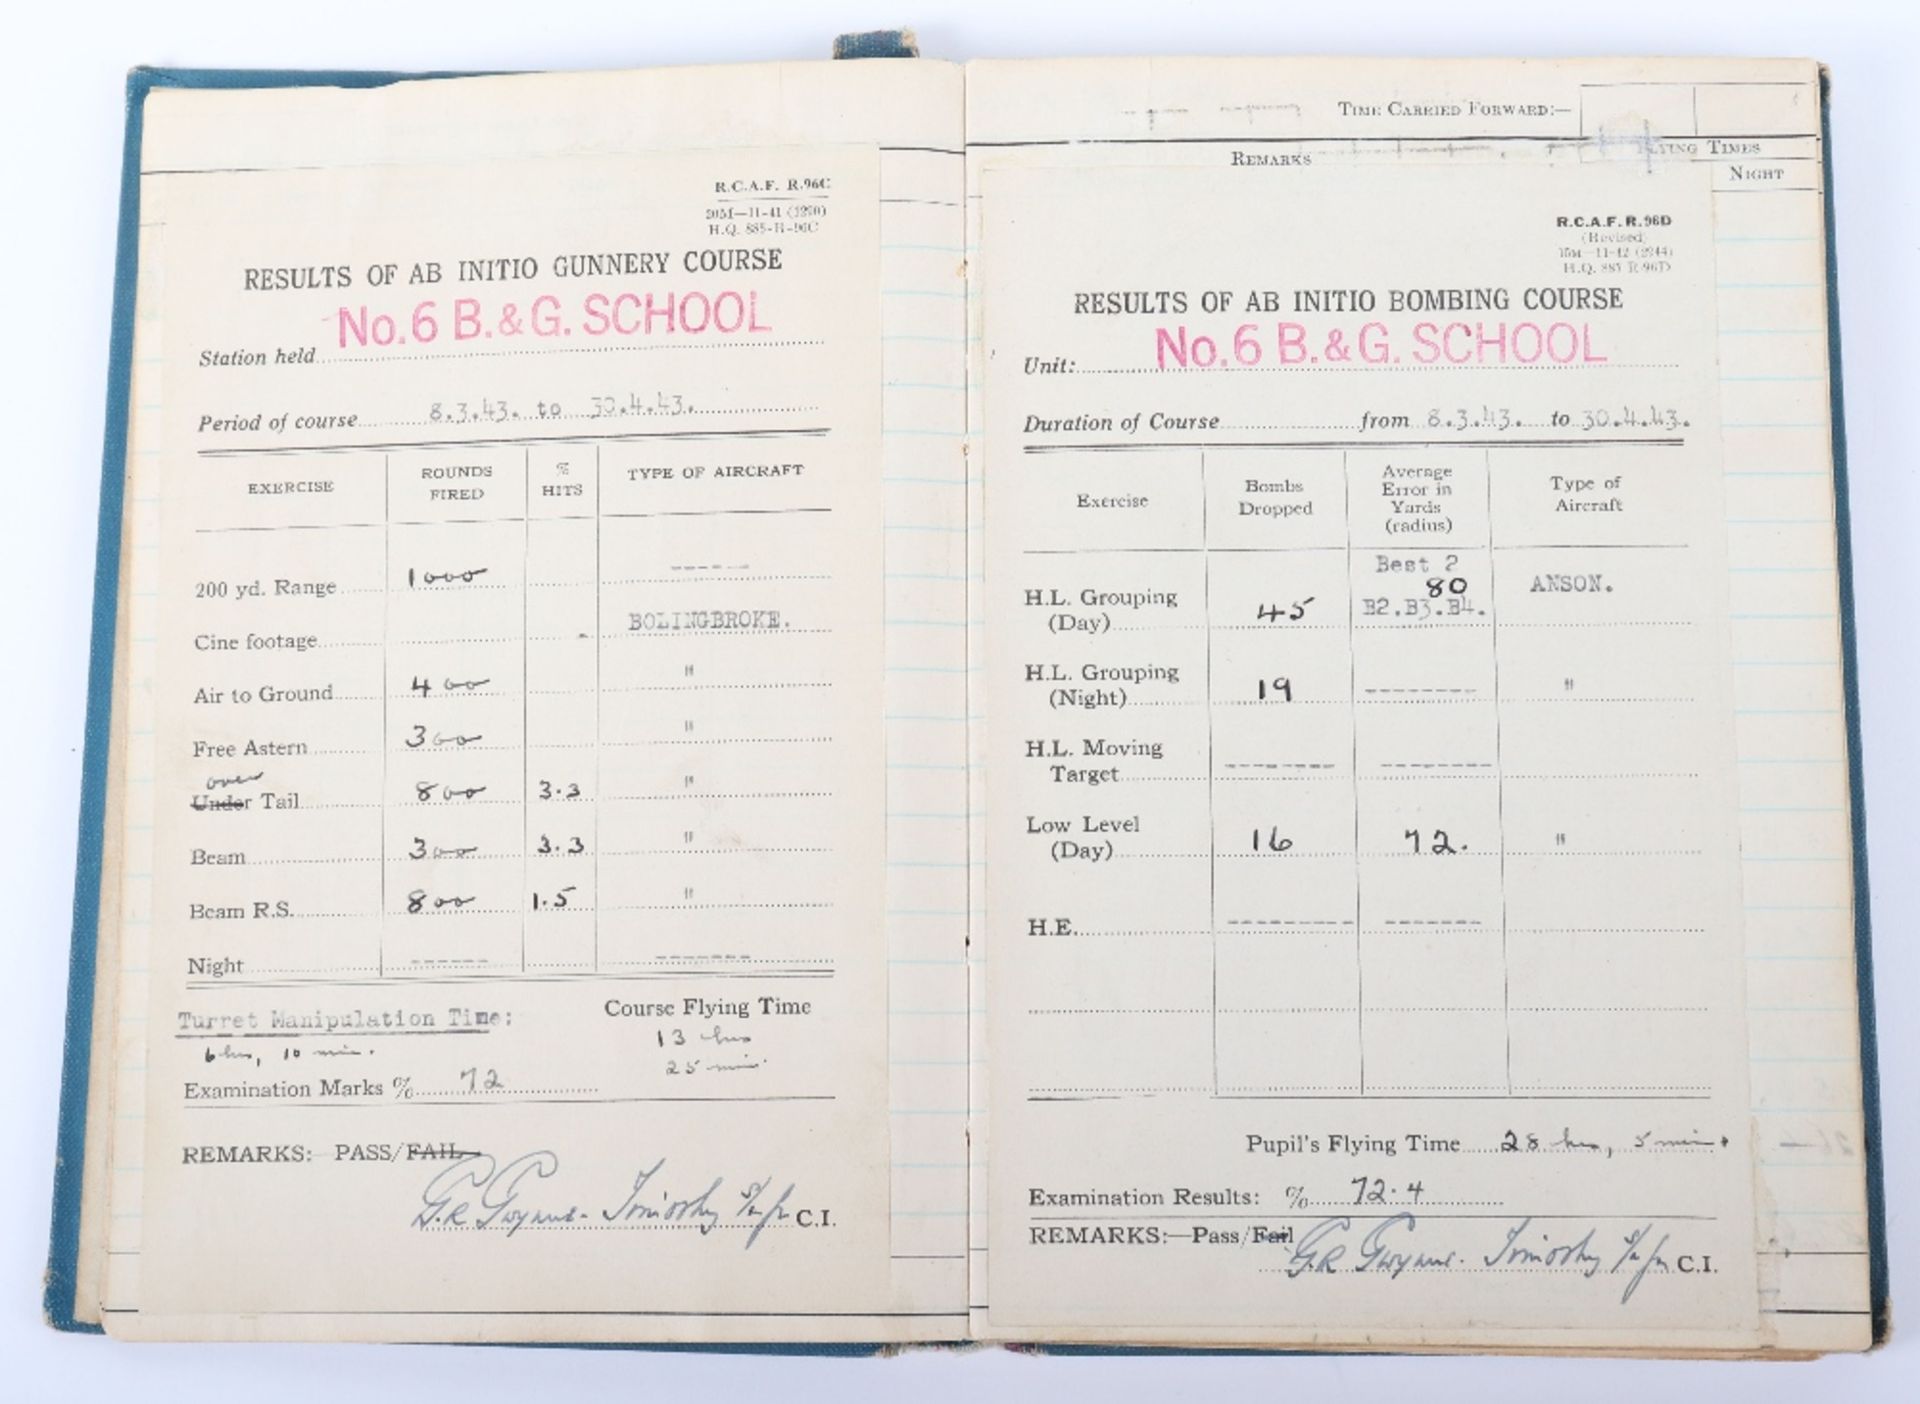 R.C.A.F. R.96C
H.Q. 885-R-96C
RESULTS OF AB INITIO GUNNERY COURSE
No.6 B.&G. SCHOOL
Station held
Period of course 8.3.43. to 30.4.43.
EXERCISE ROUNDS FIRED % HITS TYPE OF AIRCRAFT
200 yd. Range 1000 ------
Cine footage - BOLINGBROKE.
Air to Ground 400 "
Free Astern 300 "
over
Under Tail 800 3.3 "
Beam 300 3.3 "
Beam R.S. 800 1.5 "
Night ------ -------
Turret Manipulation Time: Course Flying Time
6 hrs, 10 min. 13 hrs
25 min.
Examination Marks % 72
REMARKS: PASS/FAIL
C.I.
TIME CARRIED FORWARD:—
REMARKS FLYING TIMES
NIGHT
R.C.A.F. R.96D
(Revised)
H.Q. 885 R-96D
RESULTS OF AB INITIO BOMBING COURSE
No.6 B.&G. SCHOOL
Unit:
Duration of Course from 8.3.43. to 30.4.43.
Exercise Bombs Dropped Average Error in Yards (radius) Type of Aircraft
Best 2
H.L. Grouping 80 ANSON.
(Day) 45 B2.B3.B4.
H.L. Grouping
(Night) 19 -------- "
H.L. Moving
Target -------- --------
Low Level
(Day) 16 72. "
H.E. --------- -------
Pupil's Flying Time 28 hrs, 5 min.
Examination Results: % 72.4
REMARKS:—Pass/Fail
C.I.